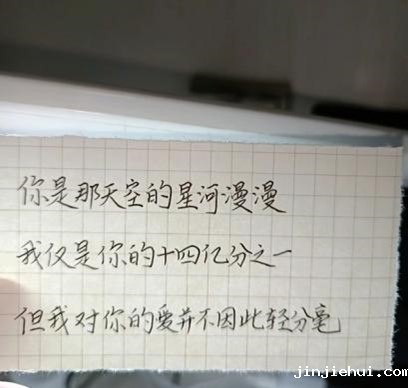 你是那天空的星河漫漫
我仅是你的十四亿分之一
但我对你的爱并不因此轻分毫
jinjiehui.com